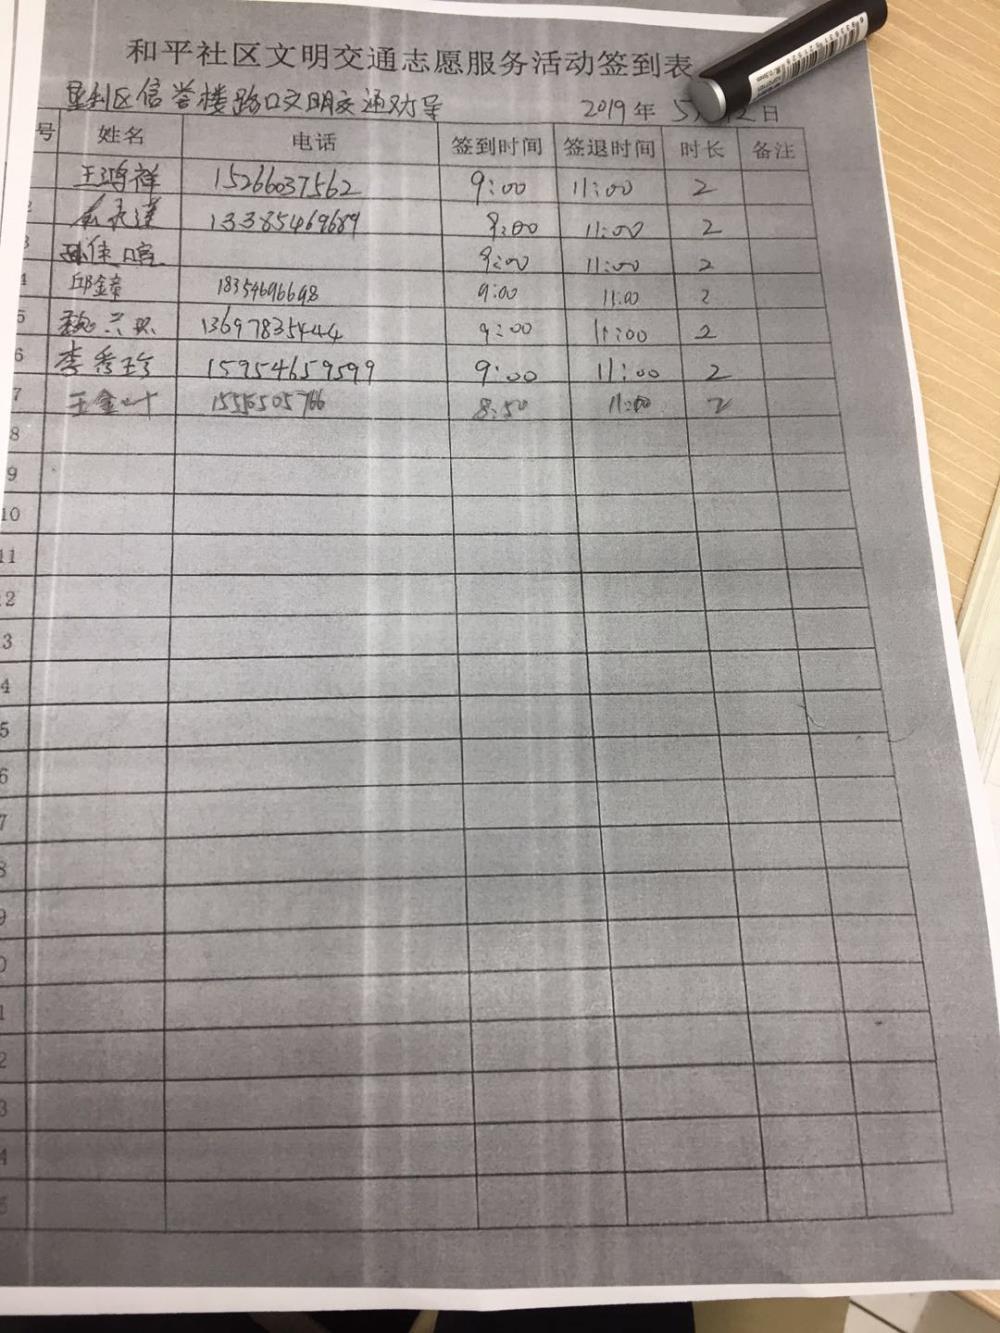 和平社区文明交通志愿服务活动签到表
垦利区信誉楼路口文明交通劝导 2019年5 12日
号 姓名 电话 签到时间 签退时间 时长 备注
王鸿祥 15266037562 9:00 11:00 2
2 13385469689 9:00 11:00 2
3 孙佳 9:00 11:00 2
4 邱鐘 18354696698 9:00 11:00 2
5 魏 13697835444 9:00 11:00 2
6 李秀珍 15954659599 9:00 11:00 2
7 王金叶 15516505766 8:50 11:00 2
8
9
10
11
12
3
4
5
6
7
8
9
0
1
2
3
4
5